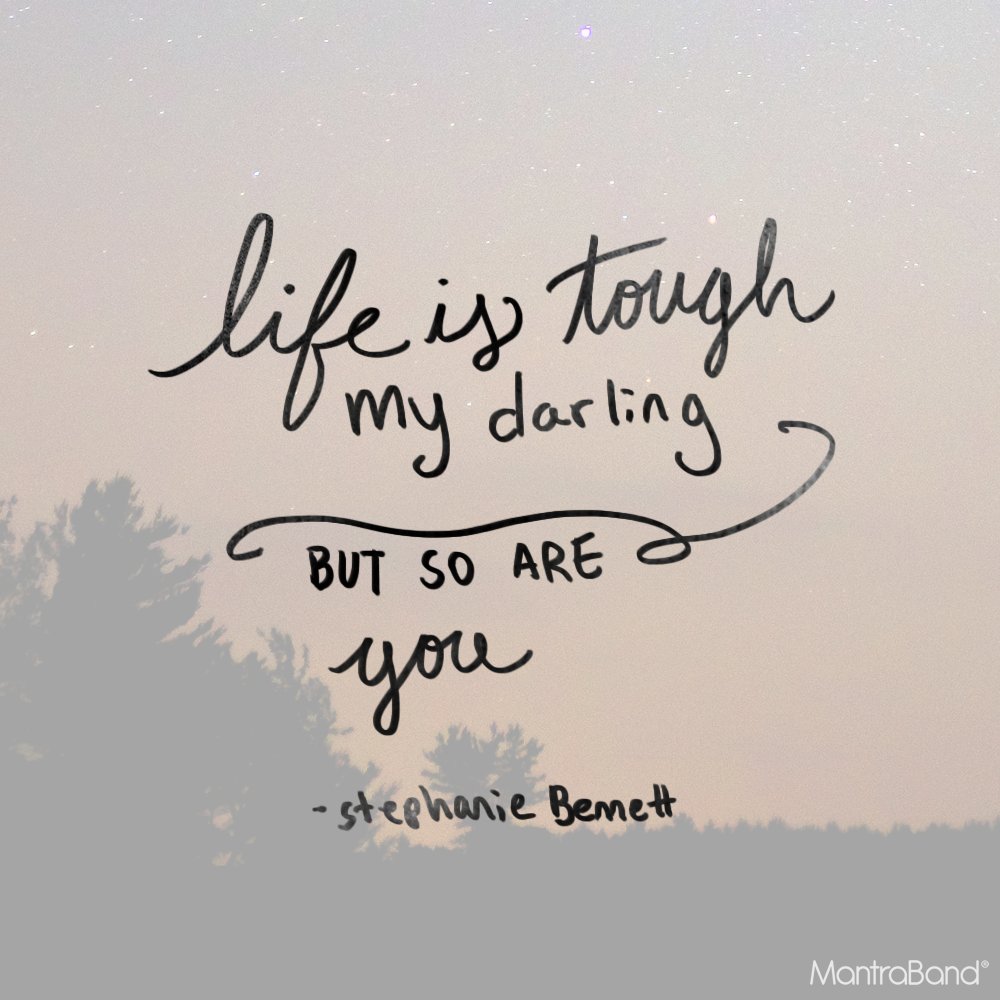 life is tough
my darling
BUT SO ARE
you
-stephanie Bennett
MantraBand®